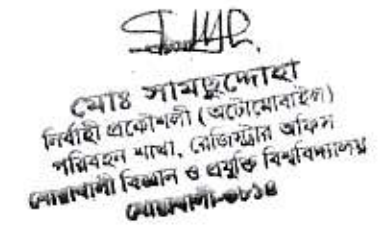 মোঃ সামছুদ্দোহা
নির্বাহী প্রকৌশলী (অটোমোবাইল)
পরিবহন শাখা, রেজিস্ট্রার অফিস
নোয়াখালী বিজ্ঞান ও প্রযুক্তি বিশ্ববিদ্যালয়
নোয়াখালী-৩৮১৪